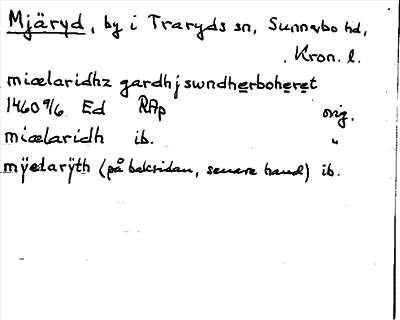 Mjäryd, by i Traryds sn, Sunnerbo hd,
Kron. l.
miælaridhz gardh j swndherboheret
1460 9/6 Ed RAp orig.
miælaridh ib. "
mÿelarÿth (på baksidan, senare hand) ib.